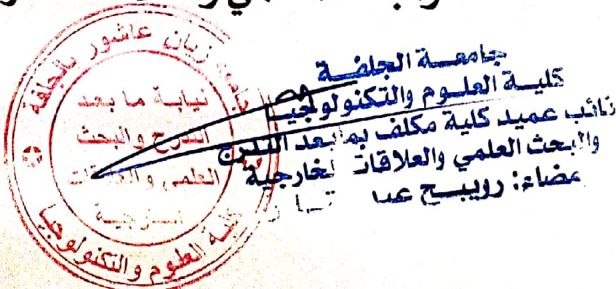 جامعة الجلفة
كلية العلوم والتكنولوجيا
نائب عميد كلية مكلف بما بعد التدرج
والبحث العلمي والعلاقات لخارجية
مضاء: رويبح عبد
زيان عاشور بالجلفة
نيابة ما بعد
التدرج والبحث
العلمي والعلاقات
كلية العلوم والتكنولوجيا